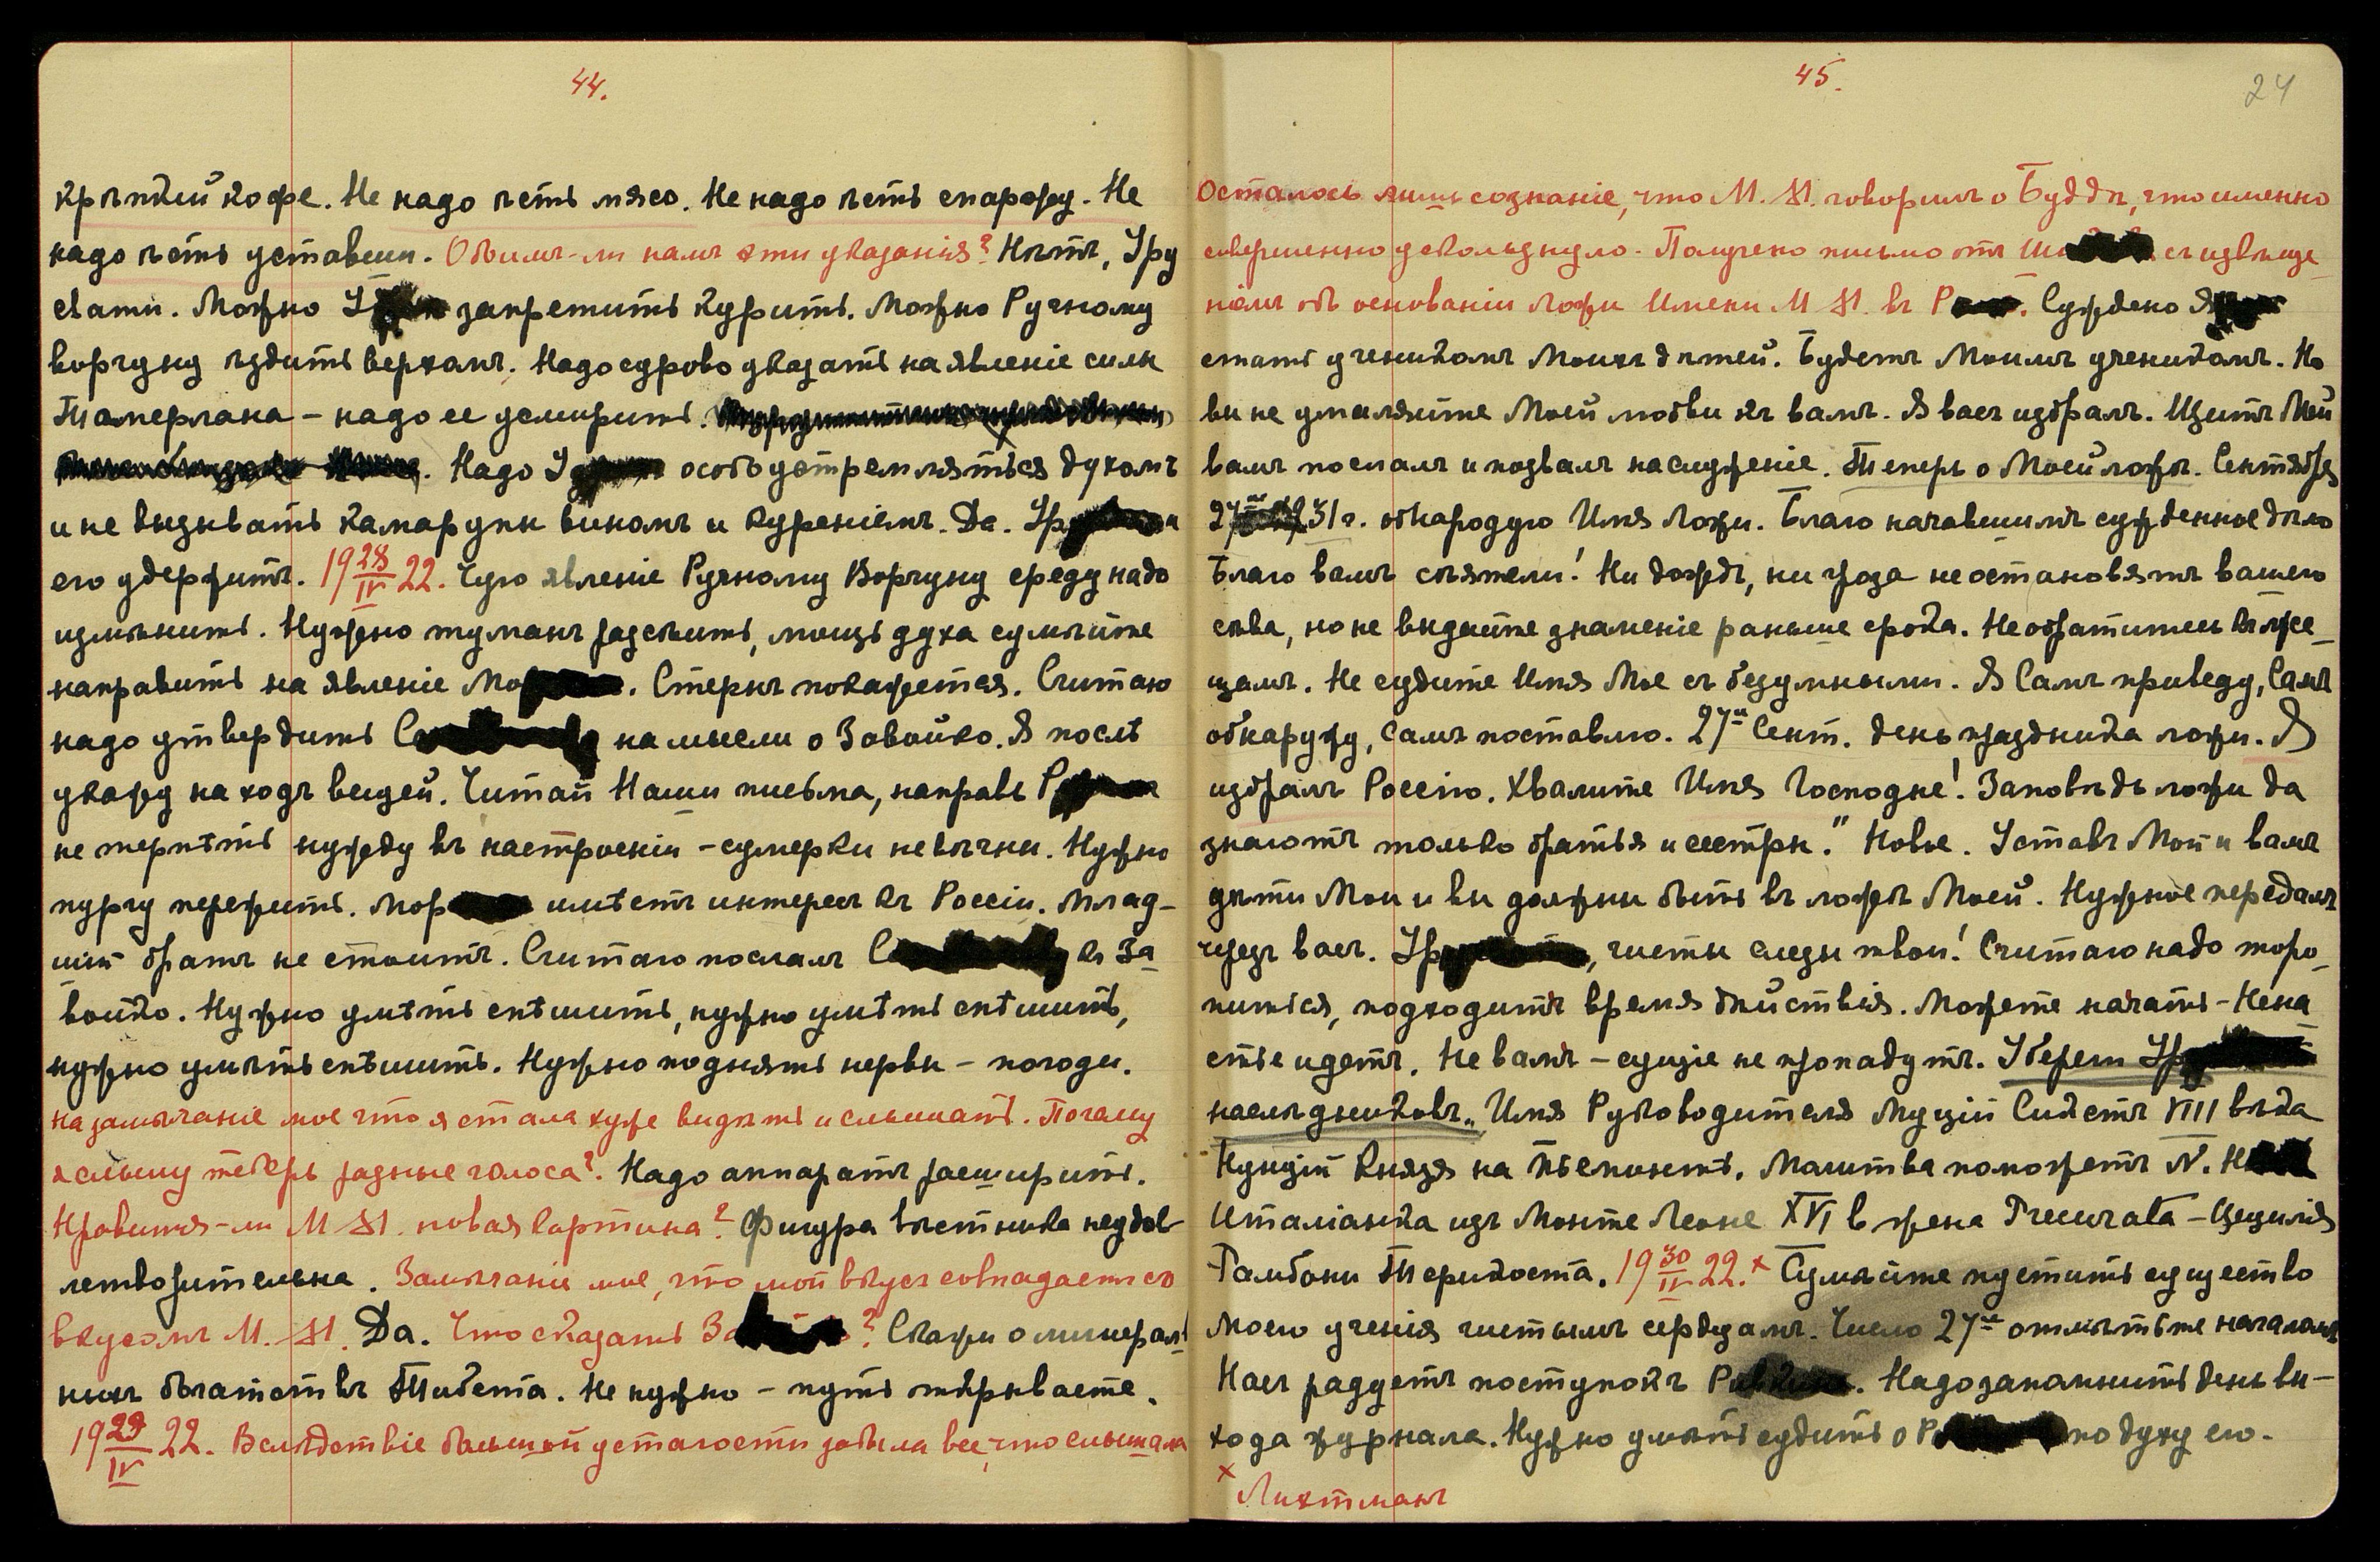 44.
крѣпкій кофе. Не надо ѣсть мясо. Не надо ѣсть спаржу. Не
надо ѣсть уставши. Обѣимъ-ли намъ эти указанія? Нѣтъ, Уру
свати. Можно запретить курить. Можно Ручному
ворчуну ѣздить верхомъ. Надо сурово указать на явленіе силы
Тамерлана – надо ее усмирить.
Надо особо устремляться духомъ
и не вызывать камарупы виномъ и куреніемъ. Да. Ур
его удержитъ. 19 28/IV 22. Чую явленіе Ручному Ворчуну среду надо
измѣнить. Нужно туманъ разсѣять, мощь духа сумѣйте
направить на явленіе Мор. Стерпѣ покажется. Считаю
надо утвердить С на мысли о Завойко. Я послѣ
укажу на ходъ вещей. Читай Наши письма, направь Р
не терпѣть нужду въ настроеніи – сумерки не вѣчны. Нужно
пургу пережить. Мор имѣетъ интересъ къ Россіи. Млад-
шій братъ не стоитъ. Считаю послалъ С къ За-
войко. Нужно умѣть спѣшить, нужно умѣть спѣшить,
нужно умѣть спѣшить. Нужно поднять нервы – погоди.
На замѣчаніе мое что я стала хуже видѣть и слышать. Почему
я слышу теперь разные голоса? Надо аппаратъ расширить.
Нравится-ли М. М. новая картина? Фигура вѣстника неудов-
летворительна. Замѣчаніе мое, что мой вкусъ совпадаетъ съ
вкусомъ М. М. Да. Что сказать За? Скажи о минераль-
ныхъ богатствъ Тибета. Не нужно – путь прерываете.
19 29/IV 22. Вслѣдствіе большой усталости забыла все, что слышала
45.
24
Осталось лишь сознаніе, что М. М. говорилъ о Буддѣ, что именно
совершенно ускользнуло. Получено письмо отъ Ши съ извѣще-
ніемъ объ основаніи ложи Имени М М. въ Р. Суждено Я
стать ученикомъ Моихъ дѣтей. Будетъ Моимъ ученикомъ. Но
вы не умаляйте Моей любви къ вамъ. Я васъ избралъ. Щитъ Мой
вамъ послалъ и позвалъ на служеніе. Теперь о Моей ложѣ. Сентября
27 31 г. обнародую Имя Ложи. Благо начавшимъ сужденное дѣло
Благо вамъ сѣятели! Ни дождь, ни гроза не остановятъ вашего
сѣва, но не выдайте знаменіе раньше срока. Не обратитесь къ лже-
цамъ. Не судите Имя Мое съ безумными. Я Самъ приведу, Самъ
обнаружу, Самъ поставлю. 27го Сент. день праздника ложи. Я
избралъ Россію. Хвалите Имя Господне! Заповѣдь ложи да
знаютъ только братья и сестры." Новое. Уставъ Мой и вамъ
дѣти Мои и вы должны быть въ ложѣ Моей. Нужное передамъ
черезъ васъ. Ур, чисты слѣды твои! Считаю надо торо-
питься, подходитъ время дѣйствія. Можете начать – Нена
стье идетъ. Не вамъ – сущіе не пропадутъ. Уберегли Ур
наслѣдниковъ." Имя Руководителя Муцій Сикстъ VIII вѣка
Нунцій Князя на Пьемонтѣ. Молитва поможетъ N. Н
Италіанка изъ Монте Леоне XVI в жена Precurata – Цецилія
Гамбони Терикоста. 19 30/IV 22.х Сумѣйте пустить существо
Моего ученія чистымъ сердцамъ. Число 27е отмѣтьте началомъ
Насъ радуетъ поступокъ Р. Надо запомнить день вы-
хода журнала. Нужно умѣть судить о Р по духу его.
х Лихтманъ